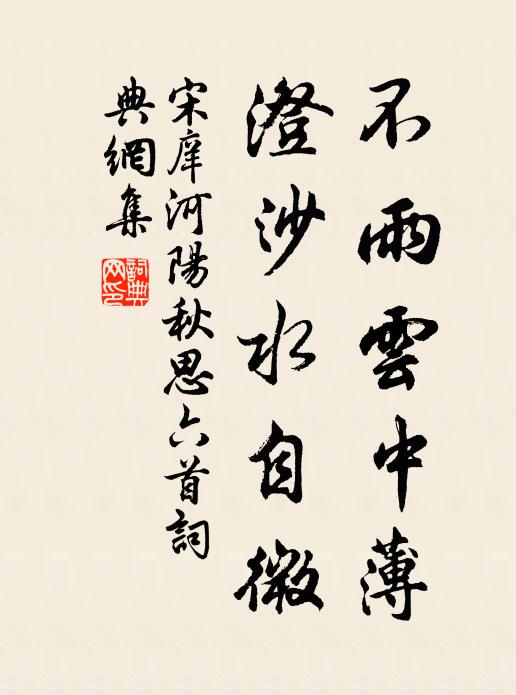 不雨雲中薄
澄沙水自微
宋庠河陽秋思六首詞
典網集
詞典
网印